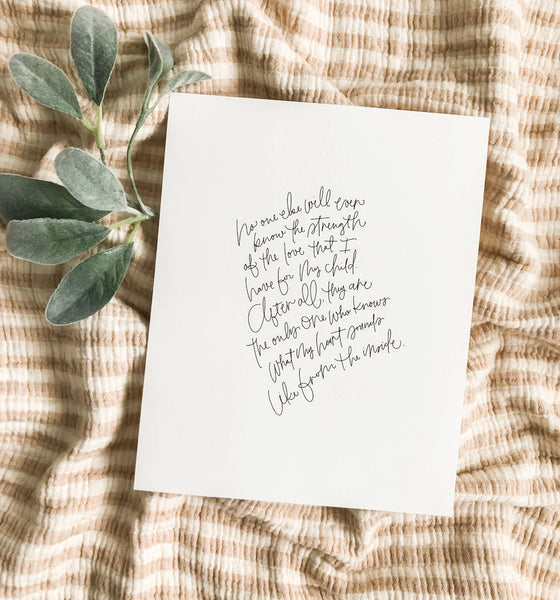 No one else will ever
know the strength
of the love that I
have for my child.
After all, they are
the only one who knows
what my heart sounds
like from the inside.